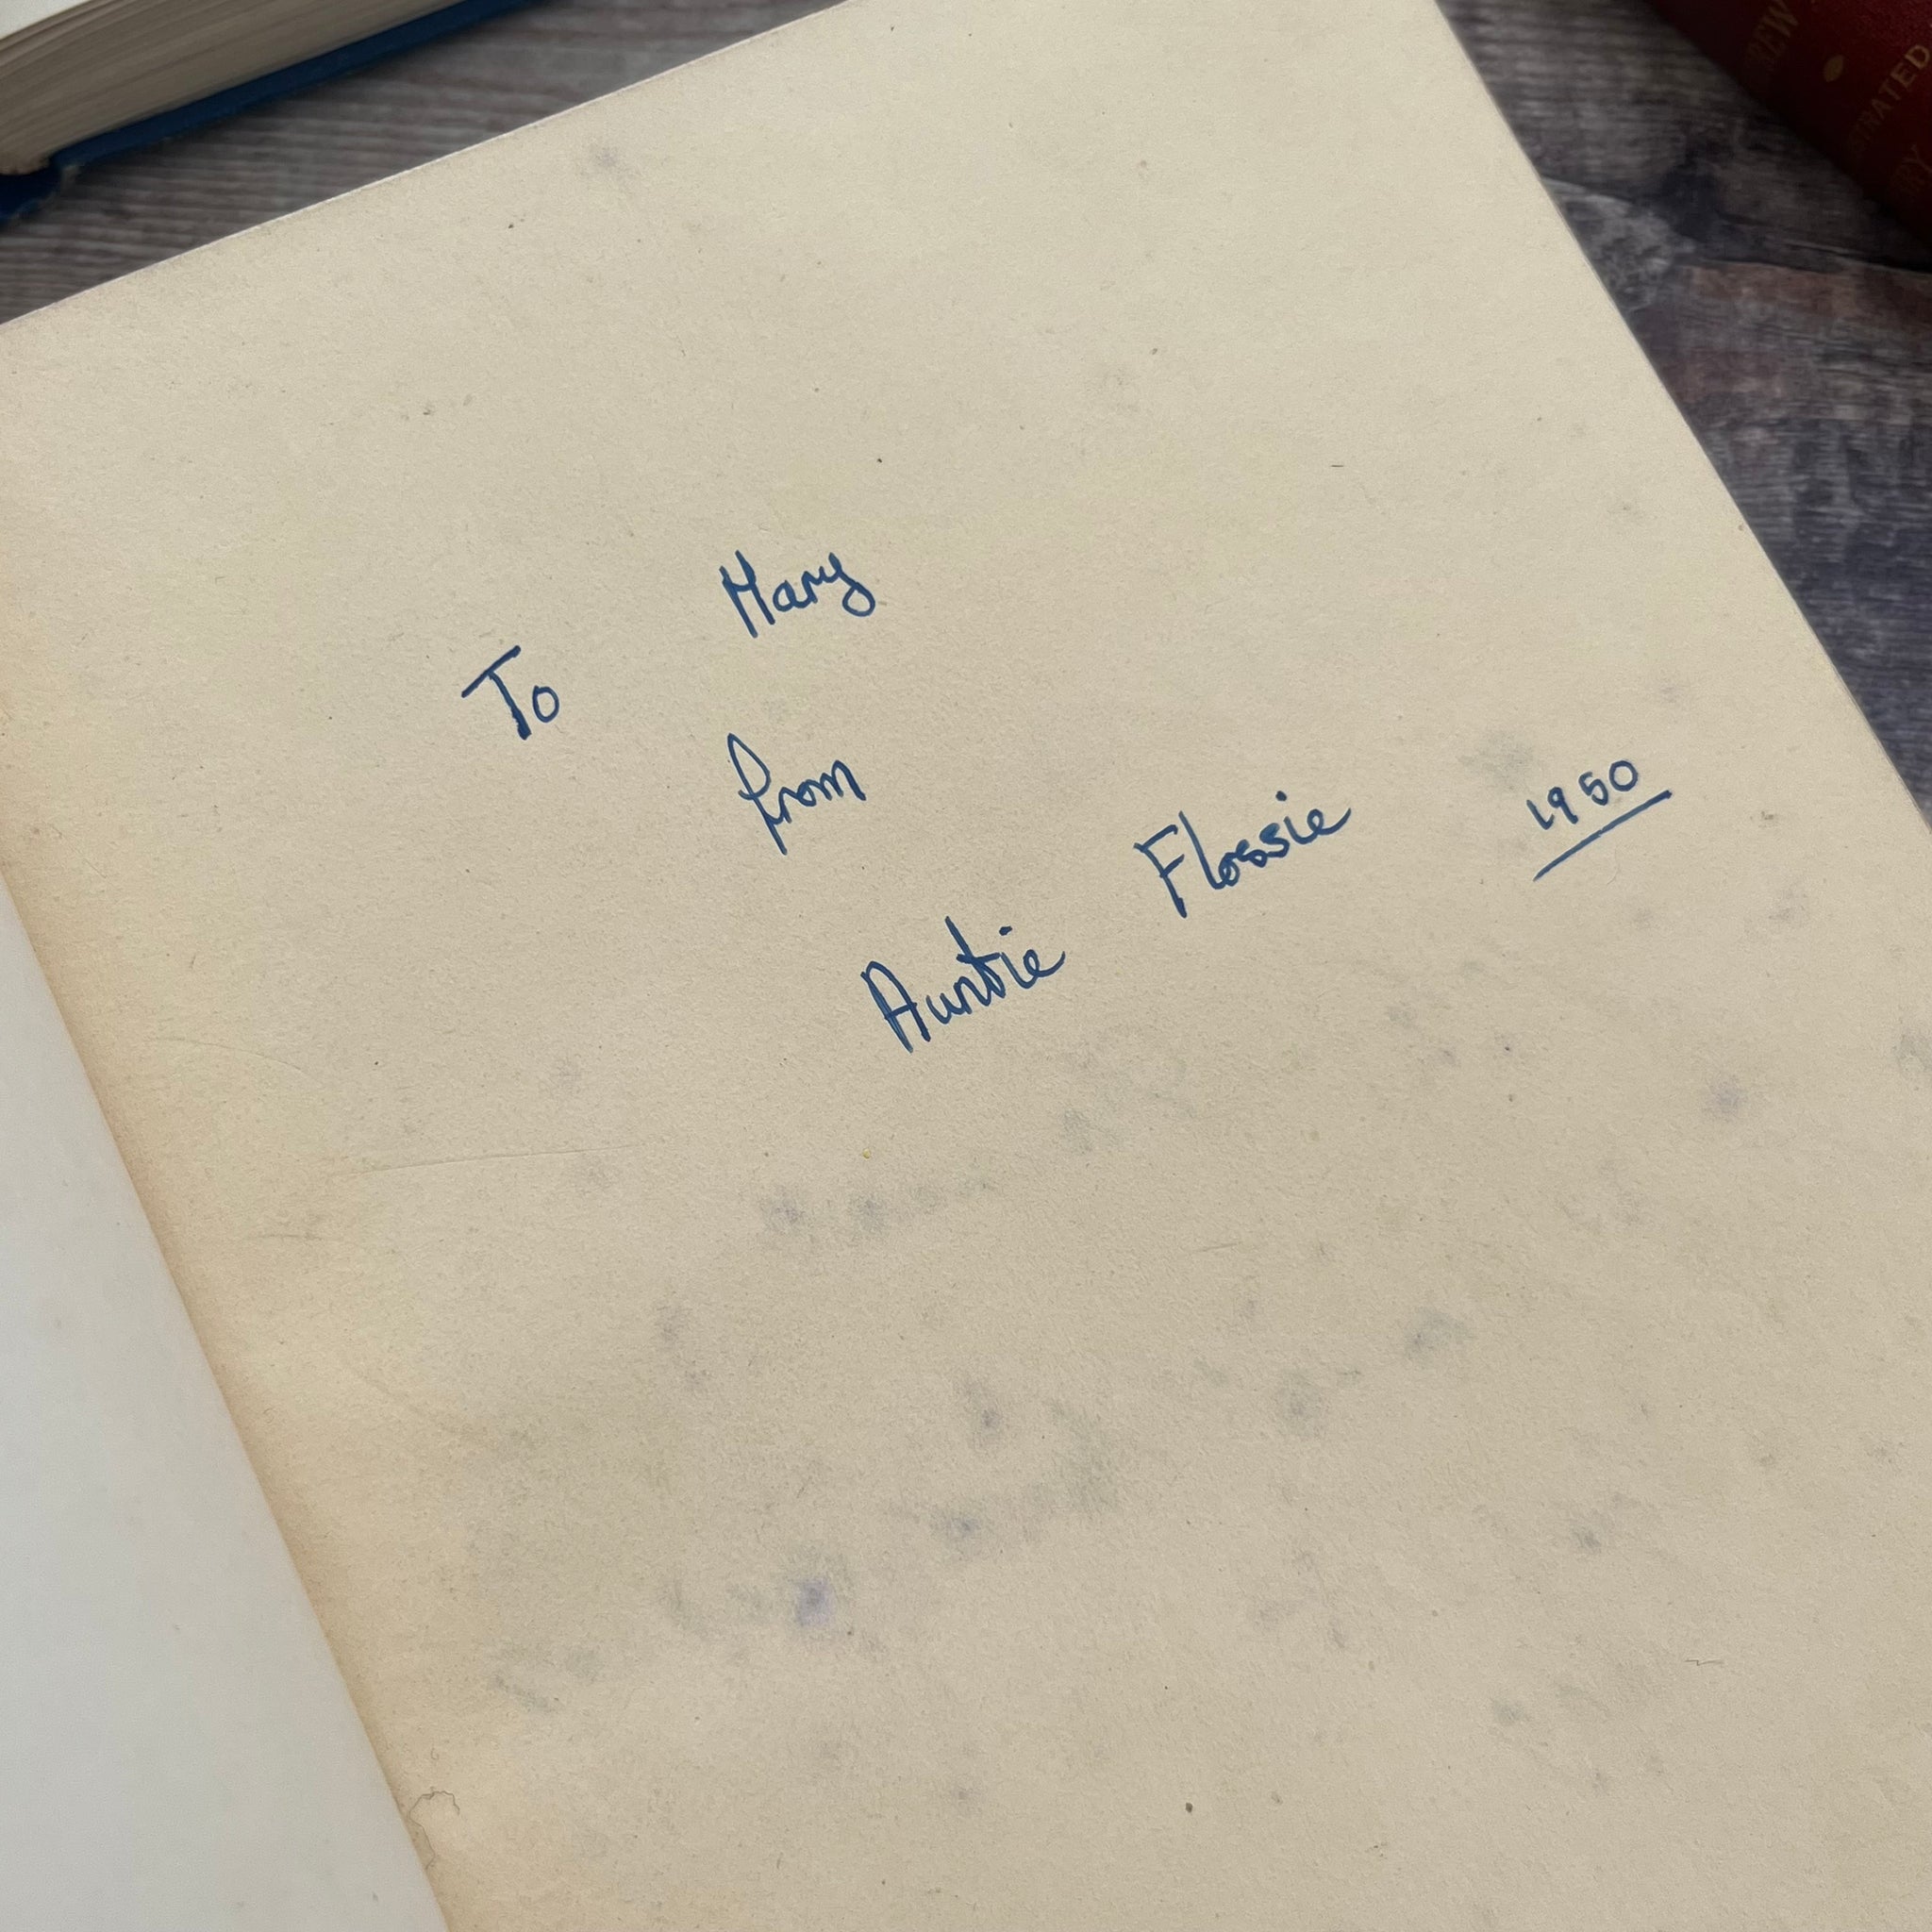 To Mary
from
Auntie Flossie 1950
TRATED